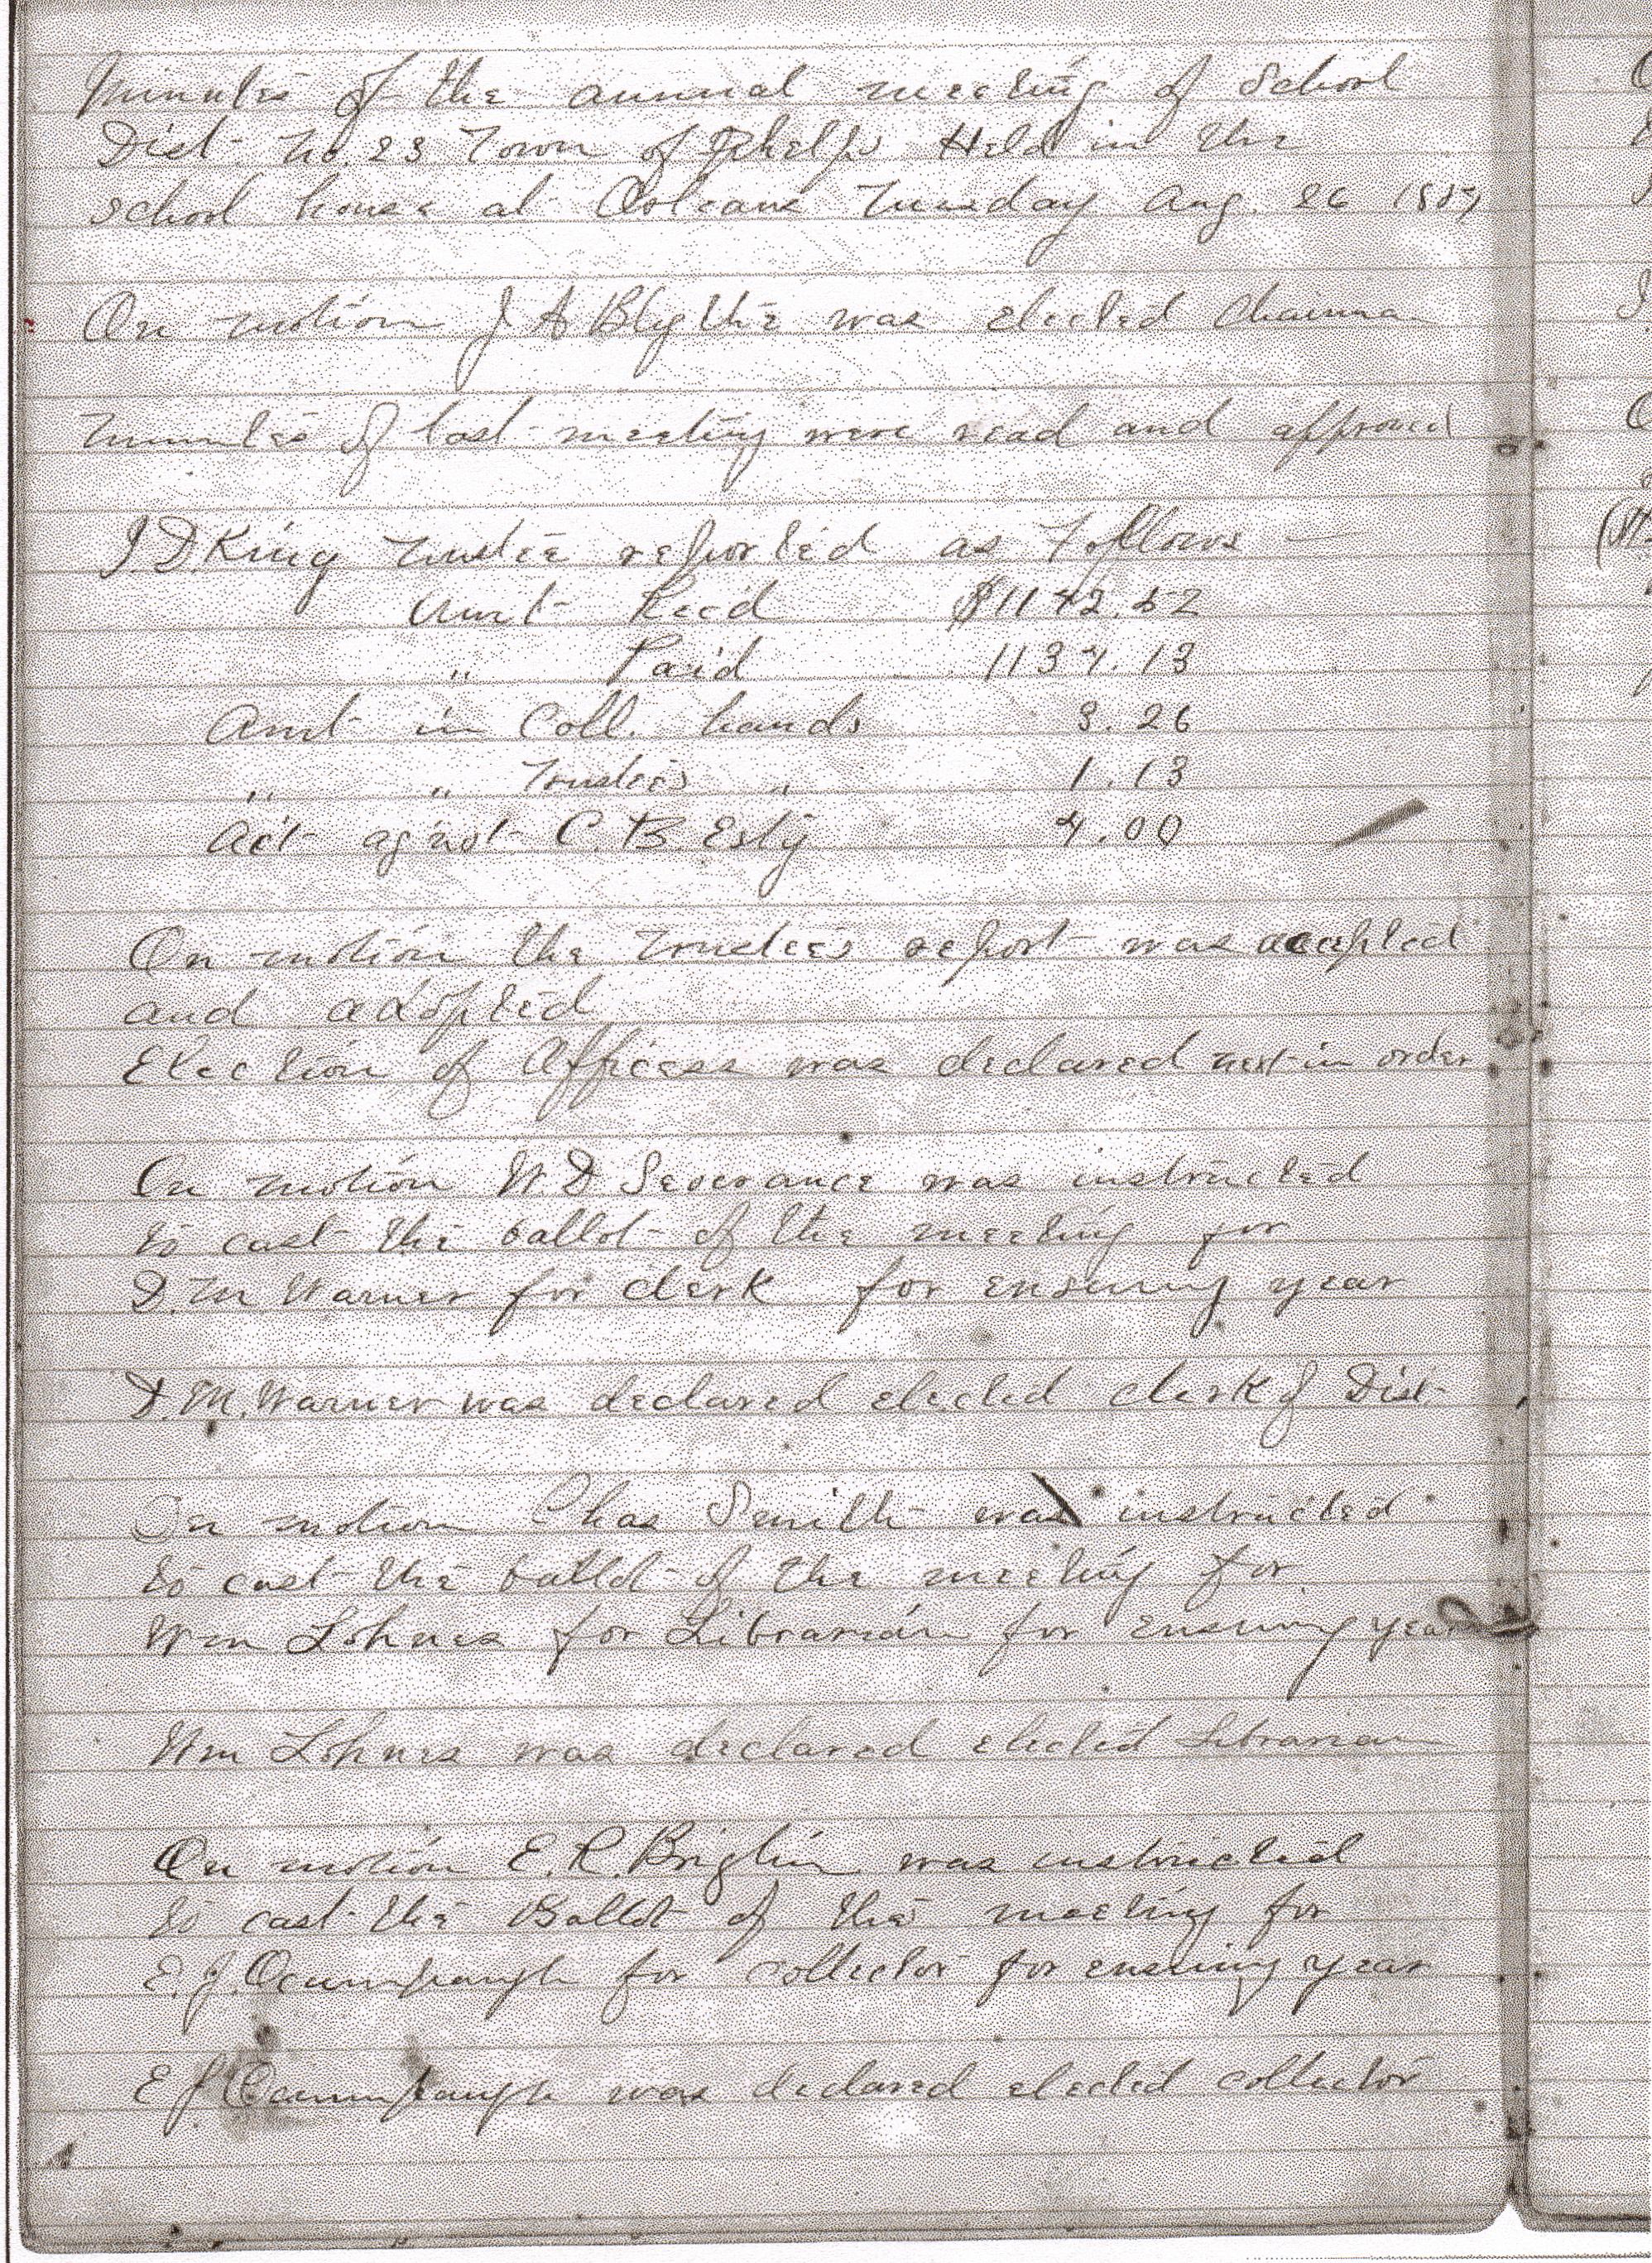 Minutes of the annual meeting of School
Dist. No. 23 Town of Phelps Held in the
school house at Orleans Tuesday Aug. 26
On motion J A Blythe was elected Chairma
Minutes of last meeting were read and approved
J. D. King Trustee reported as Follows —
Amt Recd $1142.52
" Paid 1134.13
Amt in Coll. hands 3.26
" " Trustees " 1.13
Act against C. B. Esty 4.00
On motion the Trustees report was accepted
and adopted
Election of Officers was declared next in order
On motion W. D Severance was instructed
to cast the ballot of the meeting for
D. M Warner for clerk for ensuing year
D. M. Warner was declared elected clerk of Dist
On motion Chas Smith was instructed
to cast the ballot of the meeting for
Wm Lohnes for Librarian for ensuing year
Wm Lohnes was declared elected Librarian
On motion E. R. Briglin was instructed
to cast the Ballot of the meeting for
E. J. Ocumpaugh for collector for ensuing year
E J Ocumpaugh was declared elected collector